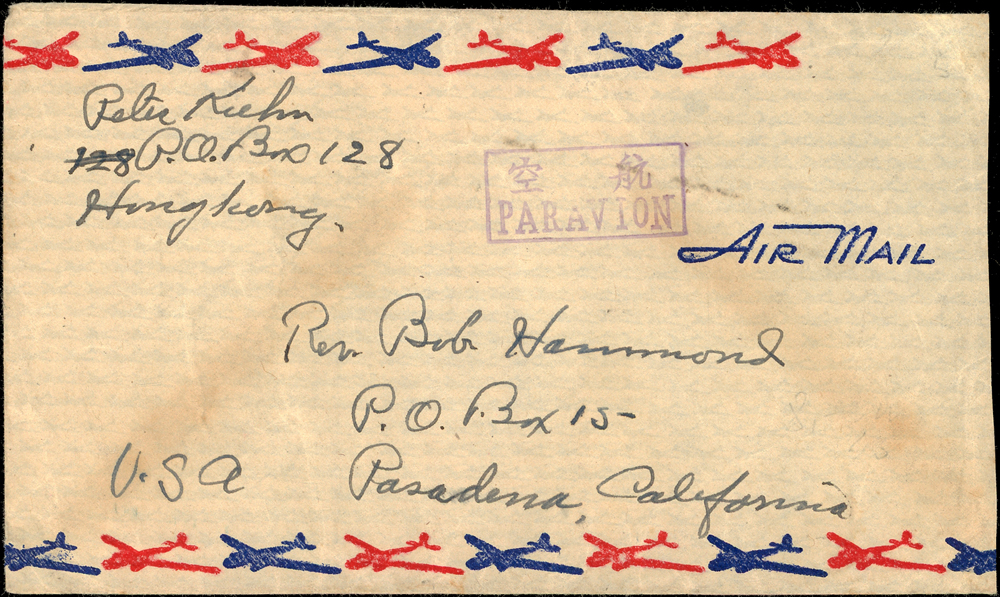 Peter Kuehn
128 P.O. Box 128
Hongkong.
空 航
PAR AVION
AIR MAIL
Rev. Bob Hammond
P. O. Box 15
U.S.A Pasadena, California